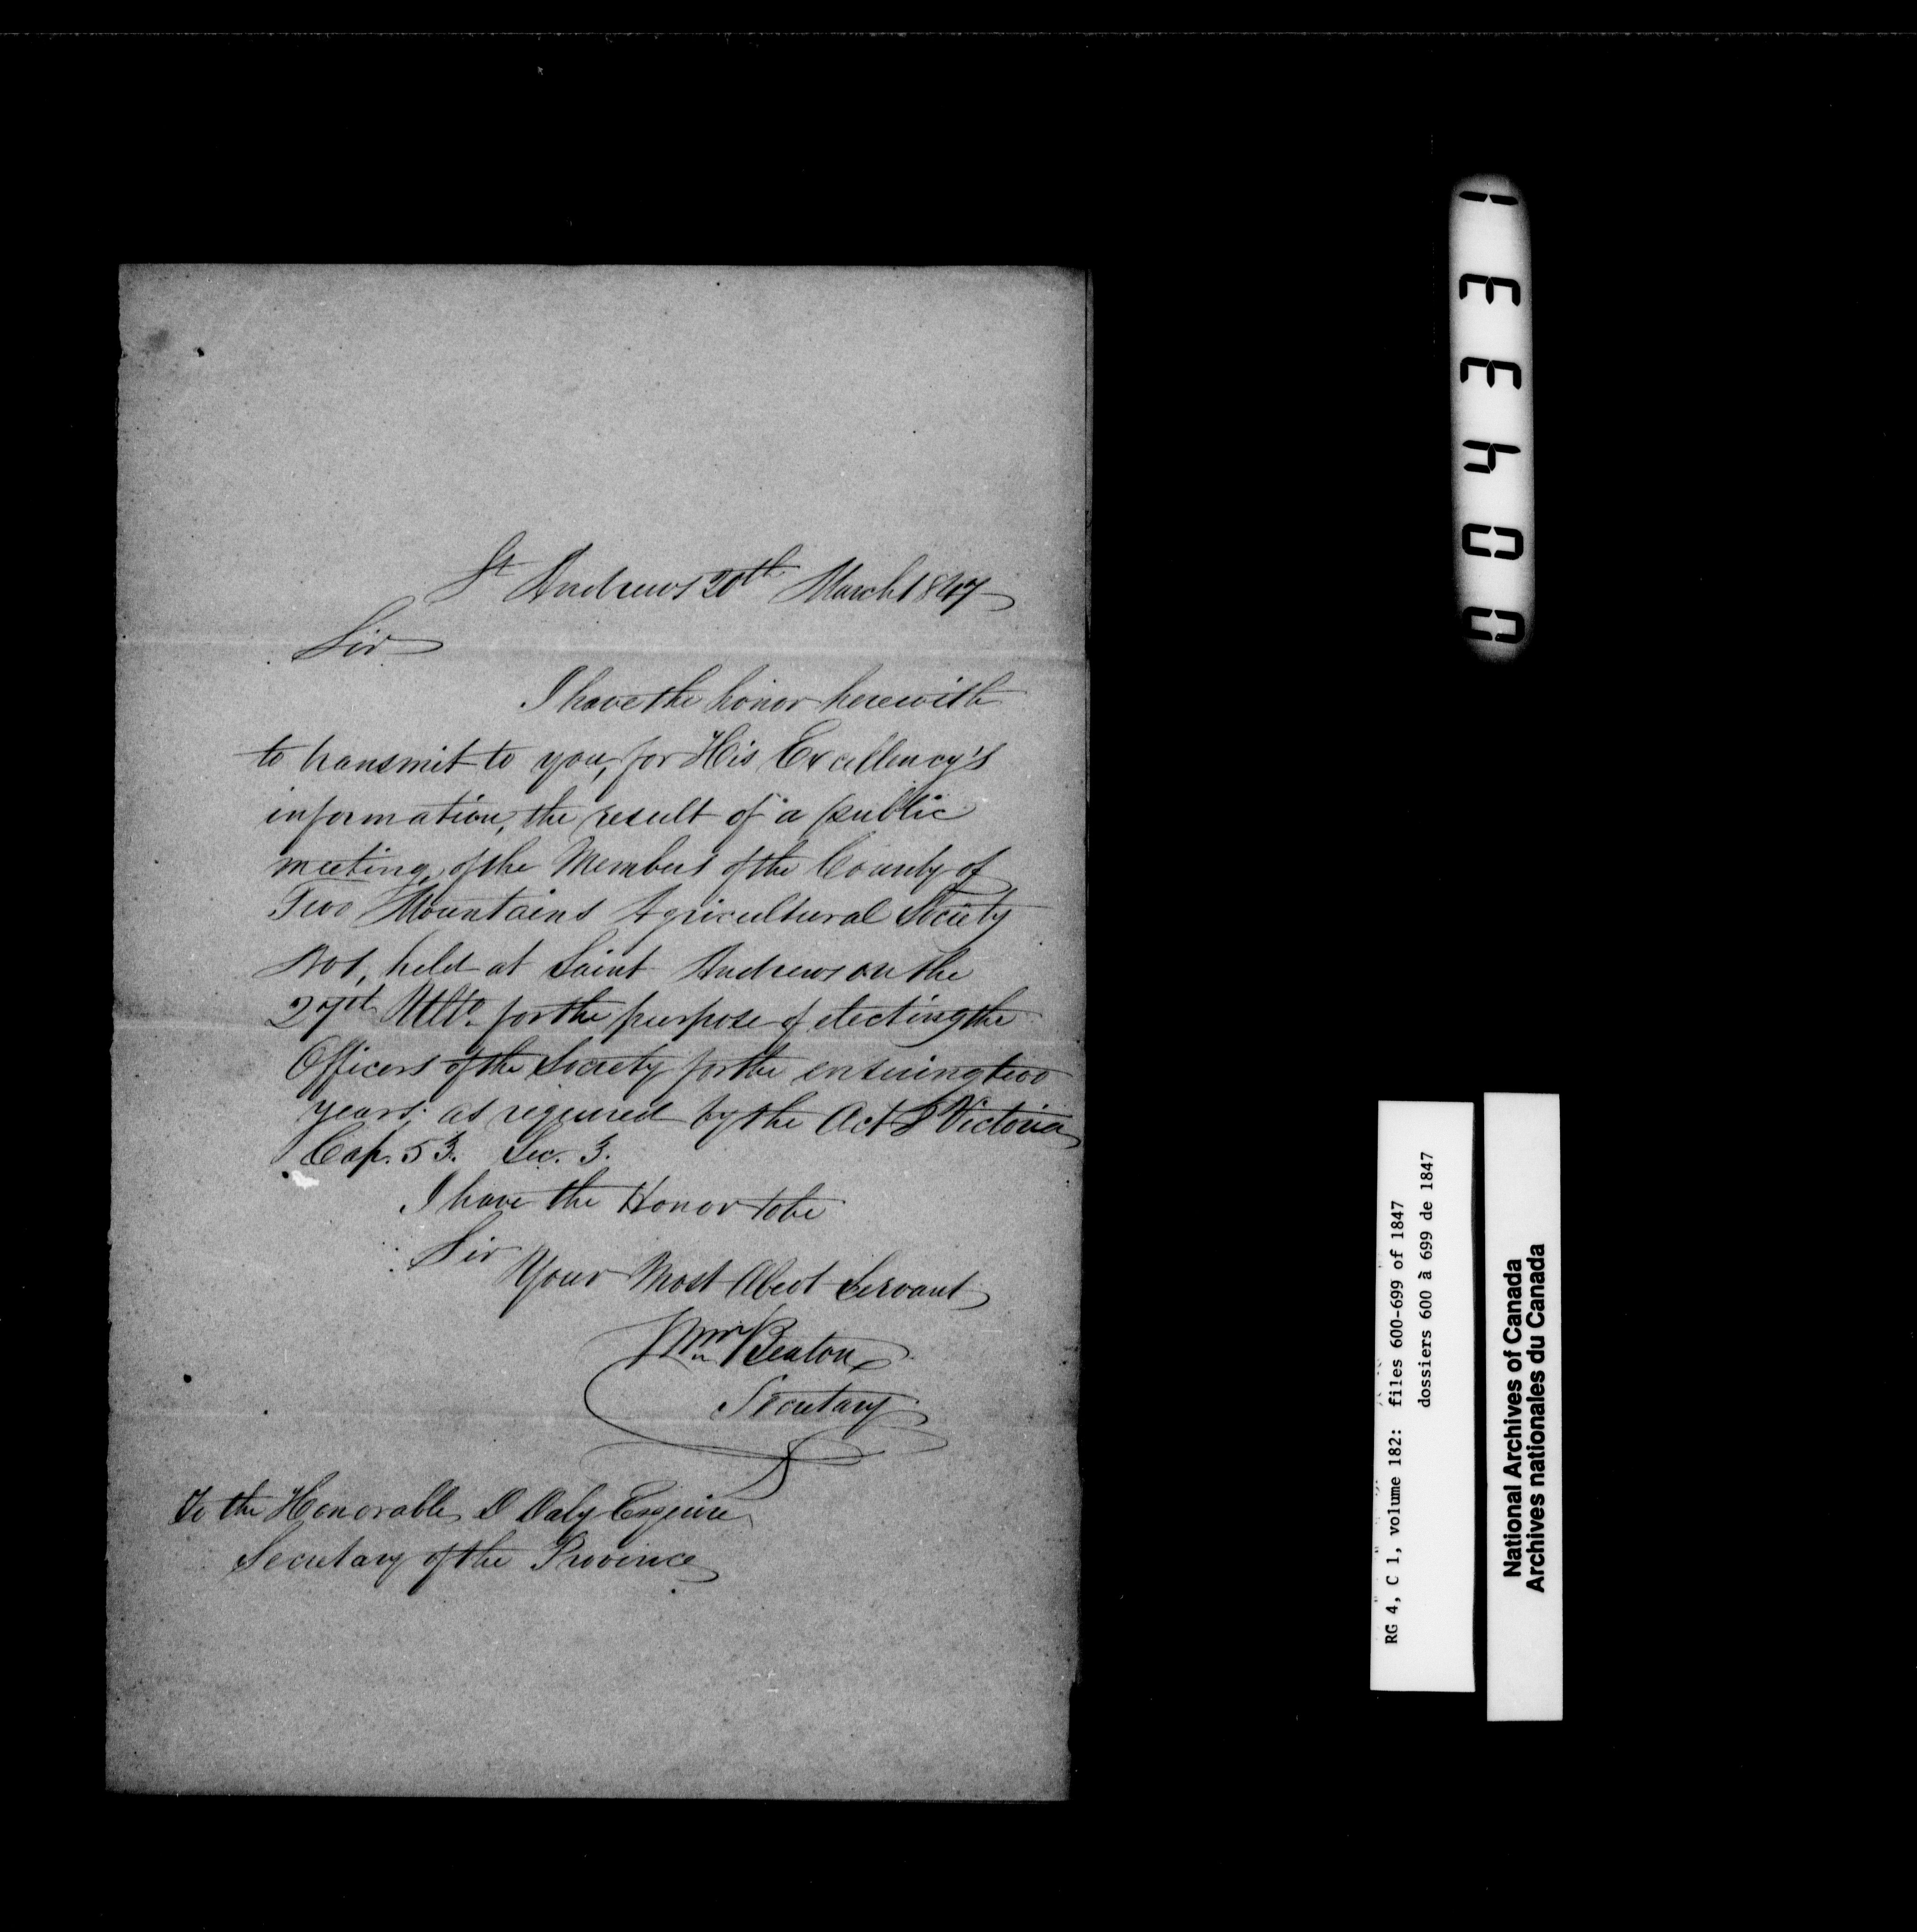 St Andrews 20th March 1847
Sir
I have the honor herewith
to transmit to you, for His Excellency's
information, the result of a public
meeting, of the Members of the County of
Two Mountains Agricultural Society
No 1, held at Saint Andrews on the
27th Ulto. for the purpose of electing the
Officers of the Society for the ensuing two
years as required by the Act Victoria
Cap. 53. Sec. 3.
I have the Honor to be
Sir
Your Most Obedt Servant
Wm Beaton
Secretary
To the Honorable D Daly Esquire
Secretary of the Province
133400
RG 4, C 1, volume 182: files 600-699 of 1847
dossiers 600 à 699 de 1847
National Archives of Canada
Archives nationales du Canada